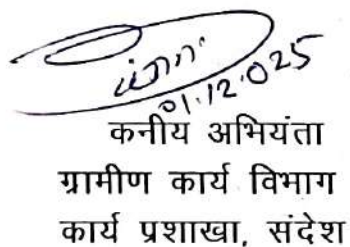 01.12.025
कनीय अभियंता
ग्रामीण कार्य विभाग
कार्य प्रशाखा, संदेश